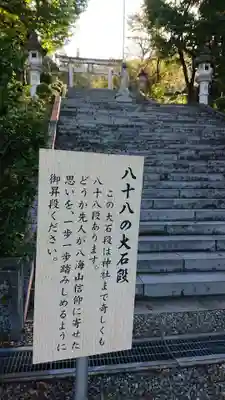 八十八の大石段
この大石段は神社まで奇しくも
八十八段あります。
どうか先人が八海山信仰に寄せた
思いを一歩一歩踏みしめるように
御昇段ください。